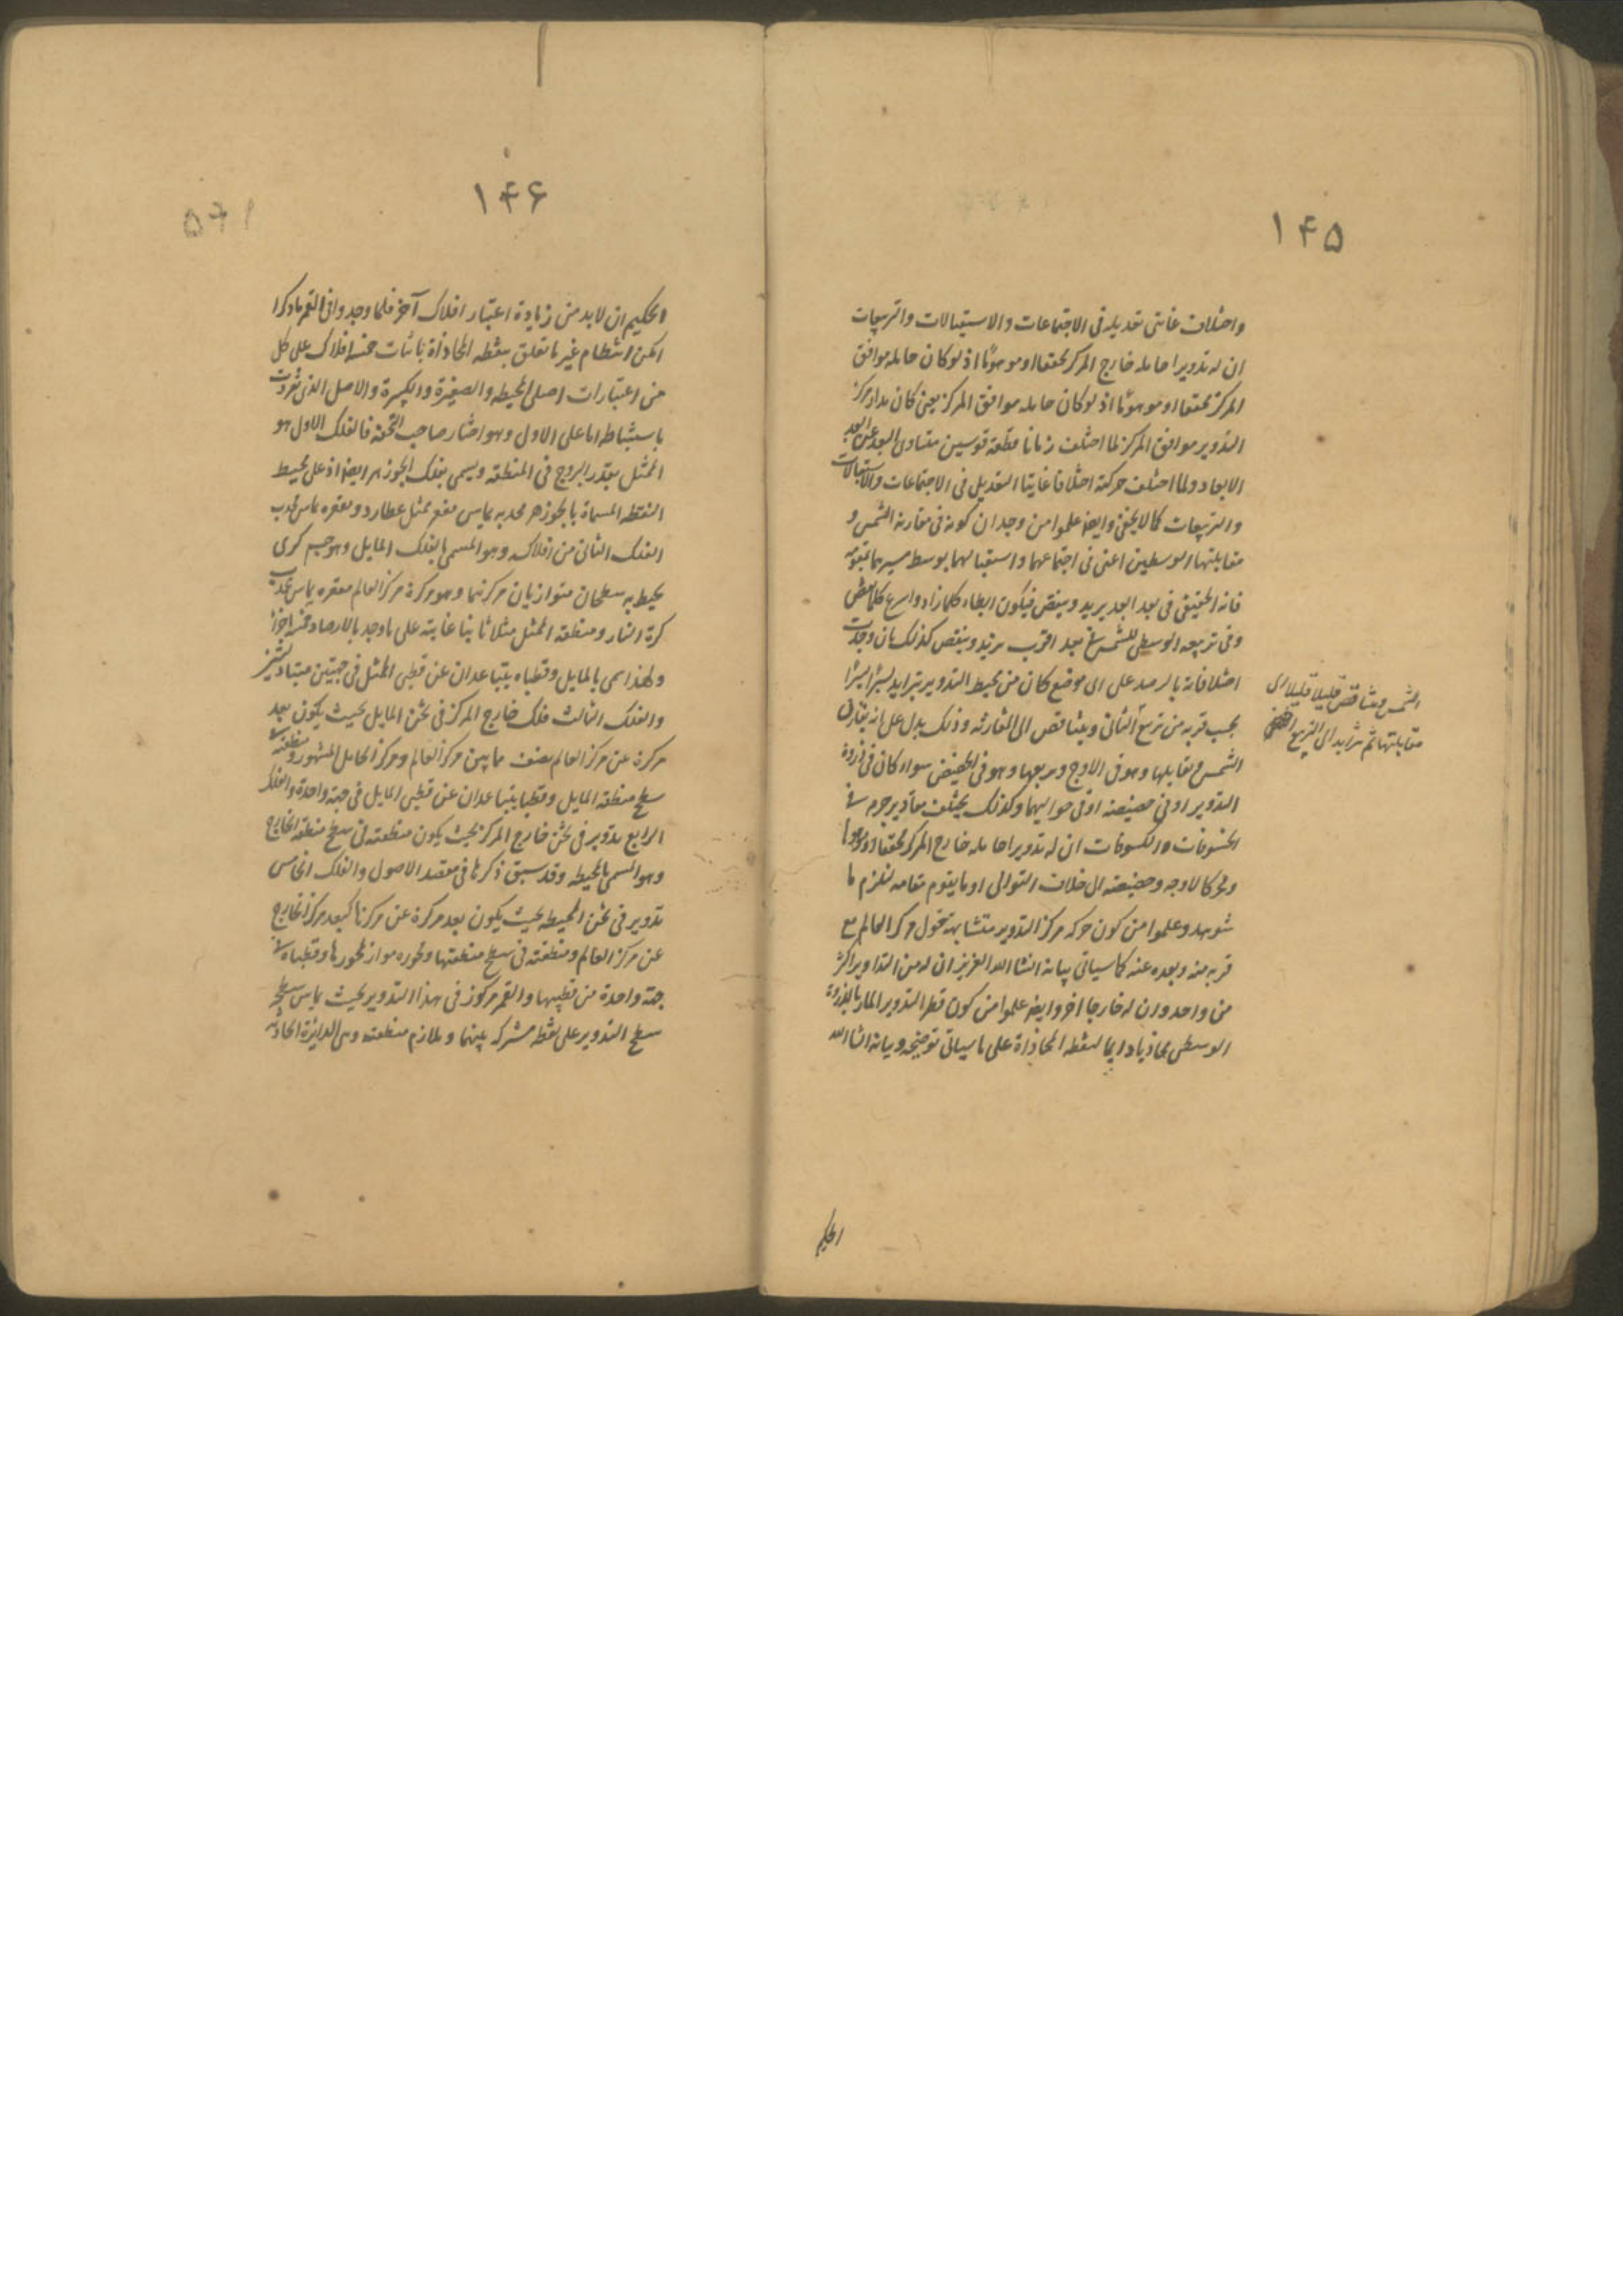 ۱۴۵
واختلاف غایتی تعدیله فی الاجتماعات والاستقبالات والتربیعات
ان له تدویرا حامله خارج المرکز محققا او موهومًا اذ لوکان حامله موافق
المرکز محققا او موهومًا اذ لوکان حامله موافق المرکز یعنی کان مدار مرکز
التدویر موافق المرکز لما اختلف زمانا قطعه قوسین متساوی البعد عن البعد
الابعد ولما اختلف حرکته اختلافا غایتا التعدیل فی الاجتماعات والاستقبالات
والتربیعات کما لایخفی وایضا علموا من وجدان کونه فی مقارنة الشمس و
مقابلتها الوسطیین اعنی فی اجتماعهما واستقبالهما بوسط سیریهما
فانه الحقیقی فی بعد ابعد یزید وینقص فیکون ابطاء کلما زاد واسرع کلما نقص
وفی تربیعه الوسطی للشمس فی بعد اقرب یزید وینقص کذلک بان وجدت
اختلافاته بالرصد علی ای موضع کان من محیط التدویر یتزاید یسیرا یسیرا
بحسب قربه من تربیع الثانی ویتناقص الی المقارنه وذلک یدل علی انه یقارن
الشمس ویقابلها وهو فی الاوج ویربعها وهو فی الحضیض سواء کان فی ذروة
التدویر او فی حضیضه او فی حوالیهما وکذلک یختلف مقادیر جرمه فی
الخسوفات والکسوفات ان له تدویرا حامله خارج المرکز محققا او موهوما
ومحرکا لاوجه وحضیضه الی خلاف التوالی او ما یقوم مقامه لیلزم ما
شوهد وعلموا من کون حرکة مرکز التدویر متشابهة حول مرکز العالم مع
قربه منه وبعده عنه کما سیاتی بیانه انشا الله العزیز ان له من التداویر اکثر
من واحد وان له خارجا اخر وایضا علموا من کون قطر التدویر المار بالذروة
الوسطی محاذیا دایما لنقطه المحاذاة علی ما سیاتی توضیحه وبیانه انشا الله
الشمس ویتناقص قلیلا قلیلا الی
مقابلتها ثم یتزاید الی التربیع
الحکیم
۱۴۶
الحکیم ان لابد من زیادة اعتبار افلاک آخر فلما وجدوا فی القمر ما ذکرا
امکن انتظام غیر ما تعلق بنقطه المحاذاة باثبات خمسه افلاک علی کل
من اعتبارات اصلی المحیطه والصغیرة والکبیرة والاصل الذی تفردت
باستنباطه اما علی الاول وهو اختیار صاحب التحفه فالفلک الاول هو
الممثل بقدر البروج فی المنطقه ویسمی بفلک الجوزهر ایضا اذ علی محیط
النقطه المسماة بالجوزهر محدبه یماس مقعر ممثل عطارد ومقعره یماس محدب
الفلک الثانی من افلاکه وهو المسمی بالفلک المایل وهو جسم کری
یحیط به سطحان متوازیان مرکزهما وهو مرکزه مرکز العالم مقعره یماس محدب
کرة النار ومنطقته الممثل مثلاثا بتا غایته علی ما وجد بالارصاد خمسه اجزاء
ولهذا سمی بالمایل وقطباه یتباعدان عن قطبی الممثل فی جهتین متبادلتین
والفلک الثالث فلک خارج المرکز فی ثخن المایل بحیث یکون بعد
مرکزه عن مرکز العالم نصف ما بین مرکز العالم ومرکز الحامل المشهور ومنطقته فی
سطح منطقه المایل وقطبا یتباعدان عن قطبی المایل فی جهة واحدة والفلک
الرابع تدویر فی ثخن خارج المرکز بحیث یکون منطقته فی سطح منطقه الخارج
وهو المسمی بالمحیطه وقد سبق ذکرها فی مقصد الاصول والفلک الخامس
تدویر فی ثخن المحیطه بحیث یکون بعد مرکزه عن مرکزها کبعد مرکز الخارج
عن مرکز العالم ومنطقته فی سطح منطقتها ومحوره مواز لمحورها وقطباه فی
جهة واحدة من قطبیها والقمر مرکوز فی هذا التدویر بحیث یماس سطحه
سطح التدویر علی نقطه مشترکه بینهما ویلازم منطقته وهی الدایرة الحادثه